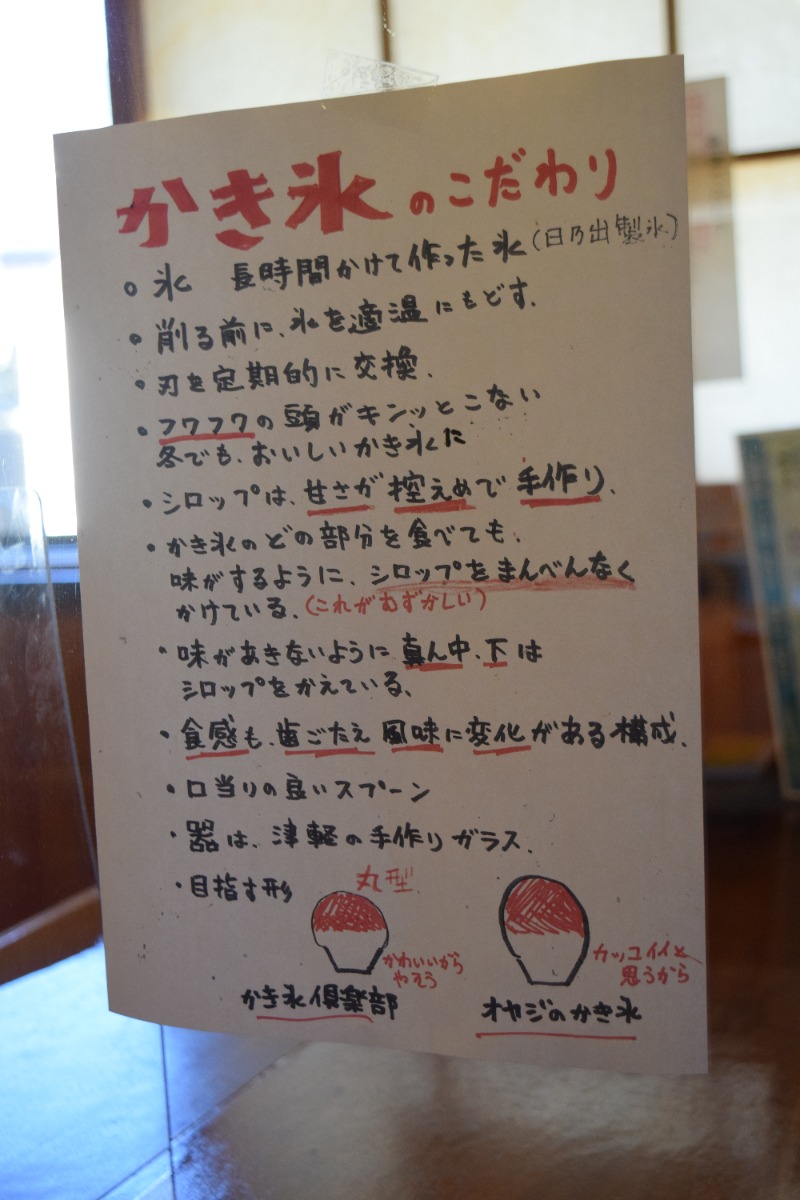 かき氷のこだわり
・氷 長時間かけて作った氷(日乃出製氷)
・削る前に、氷を適温にもどす.
・刃を定期的に交換.
・フワフワの頭がキンッとこない
冬でも、おいしいかき氷に
・シロップは、甘さが控えめで手作り.
・かき氷のどの部分を食べても.
味がするように、シロップをまんべんなく
かけている.(これがむずかしい)
・味があきないように真ん中、下は
シロップをかえている、
・食感も、歯ごたえ 風味に変化がある構成.
・口当りの良いスプーン
・器は、津軽の手作りガラス.
・目指す形 丸型
かわいいから
カッコイイと
思うから
かき氷倶楽部
オヤジのかき氷